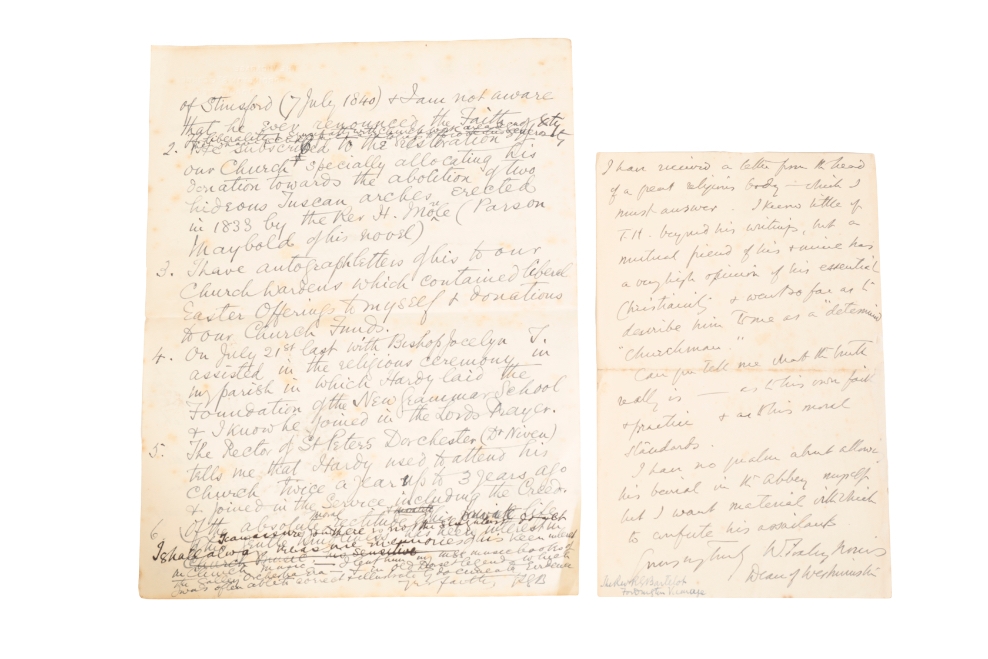 of Stinsford (7 July 1840) & I am not aware
that he ever renounced the Faith
2. He subscribed to the restoration of
our Church specially allocating his
donation towards the abolition of two
hideous Tuscan arches erected
in 1833 by the Rev H. Moule (Parson
Maybold of his novel)
3. I have autograph letters of his to our
Churchwardens which contained liberal
Easter Offerings to myself & donations
to our Church Funds.
4. On July 21st last with Bishop Jocelyn I
assisted in the religious ceremony in
my parish in which Hardy laid the
Foundation of the New Grammar School
& I know he joined in the Lords Prayer.
5. The Rector of St Peters Dorchester (Dr Niven)
tells me that Hardy used to attend his
Church twice a year up to 3 years ago
& joined in the Service including the Creeds.
6. Of the absolute rectitude of his private life
I am aware there is not the
I shall always
Church music
Yr f faithly, RGB
I have received a letter from the head
of a great religious body – which I
must answer. I know little of
T.H. beyond his writings, but a
mutual friend of his & mine has
a very high opinion of his essential
Christianity & went so far as to
describe him to me as a "determined
"Churchman."
Can you tell me what the truth
really is — as to his own faith
& practice & as to his moral
standards.
I have no qualm about allowing
his burial in the Abbey myself
but I want material with which
to confute his assailants
Yours very truly W. Foxley Norris
Dean of Westminster
The Rev RG Bartelot
Fordington Vicarage